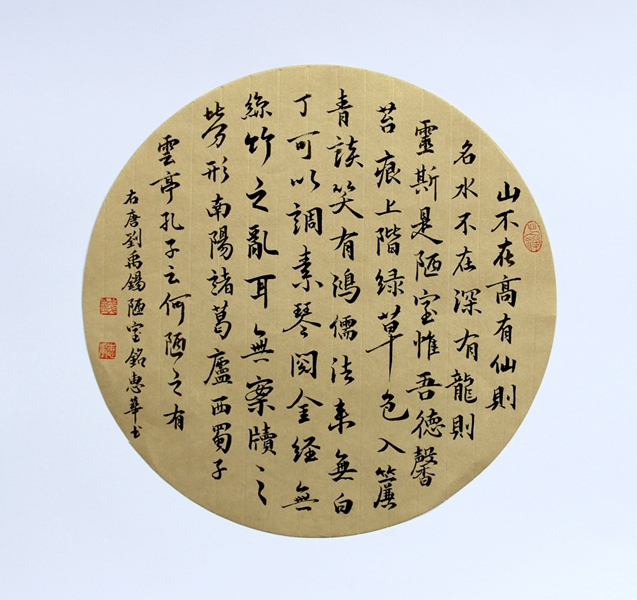 山不在高有仙則
名水不在深有龍則
靈斯是陋室惟吾德馨
苔痕上階绿草色入簾
青談笑有鴻儒往来無白
丁可以調素琴閲金经無
絲竹之亂耳無案牘之
勞形南陽諸葛廬西蜀子
雲亭孔子云何陋之有
右唐劉禹錫陋室銘惠華书